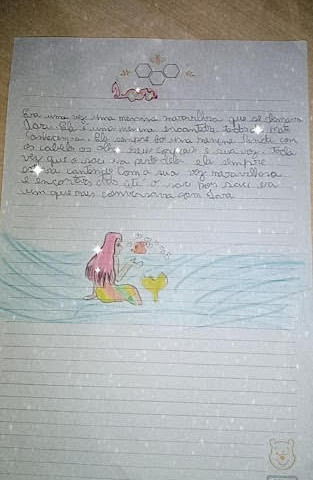 Era uma vez uma menina maravilhosa que se chamava
Iara Ela é uma menina encantada todos
conheceram Ela sempre foi uma menina linda com
os cabelo os olho seu corpo e sua voz toda
vez que o saci ia perto dela ela sempre
estava cantando com a sua voz maravilhosa
e encantava até o saci pois saci era
um que mais conversava com Iara